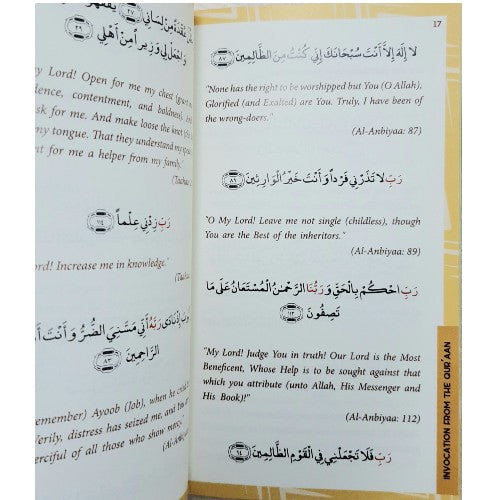 عُقْدَةً مِنْ لِسَانِي ٢٧ يَفْقَهُوا
٢٩ وَاجْعَلْ لِي وَزِيرًا مِنْ أَهْلِي
My Lord! Open for me my chest (grant
dence, contentment, and boldness). And
ask for me. And make loose the knot
my tongue. That they understand my
nt for me a helper from my family."
(Taahaa
رَبِّ زِدْنِي عِلْماً ١١٤
ord! Increase me in knowledge."
(Taaha
إِذْ نَادَى رَبَّهُ أَنِّي مَسَّنِيَ الضُّرُّ وَأَنْتَ
الرَّاحِمِينَ ٨٣
emember) Ayoob (Job), when he
Verily, distress has seized me, and
erciful of all those who show mercy."
(Al-Anbiy
17
لا إِلَهَ إِلاَّ أَنْتَ سُبْحَانَكَ إِنِّي كُنْتُ مِنَ الظَّالِمِينَ ٨٧
"None has the right to be worshipped but You (O Allah),
Glorified (and Exalted) are You. Truly, I have been of
the wrong-doers."
(Al-Anbiyaa: 87)
رَبِّ لا تَذَرْنِي فَرْداً وَأَنْتَ خَيْرُ الْوَارِثِينَ
"O My Lord! Leave me not single (childless), though
You are the Best of the inheritors."
(Al-Anbiyaa: 89)
رَبِّ احْكُمْ بِالْحَقِّ وَرَبُّنَا الرَّحْمَنُ الْمُسْتَعَانُ عَلَى مَا
تَصِفُونَ
"My Lord! Judge You in truth! Our Lord is the Most
Beneficent, Whose Help is to be sought against that
which you attribute (unto Allah, His Messenger and
His Book)!"
(Al-Anbiyaa: 112)
رَبِّ فَلا تَجْعَلْنِي فِي الْقَوْمِ الظَّالِمِينَ
INVOCATION FROM THE QUR'AAN